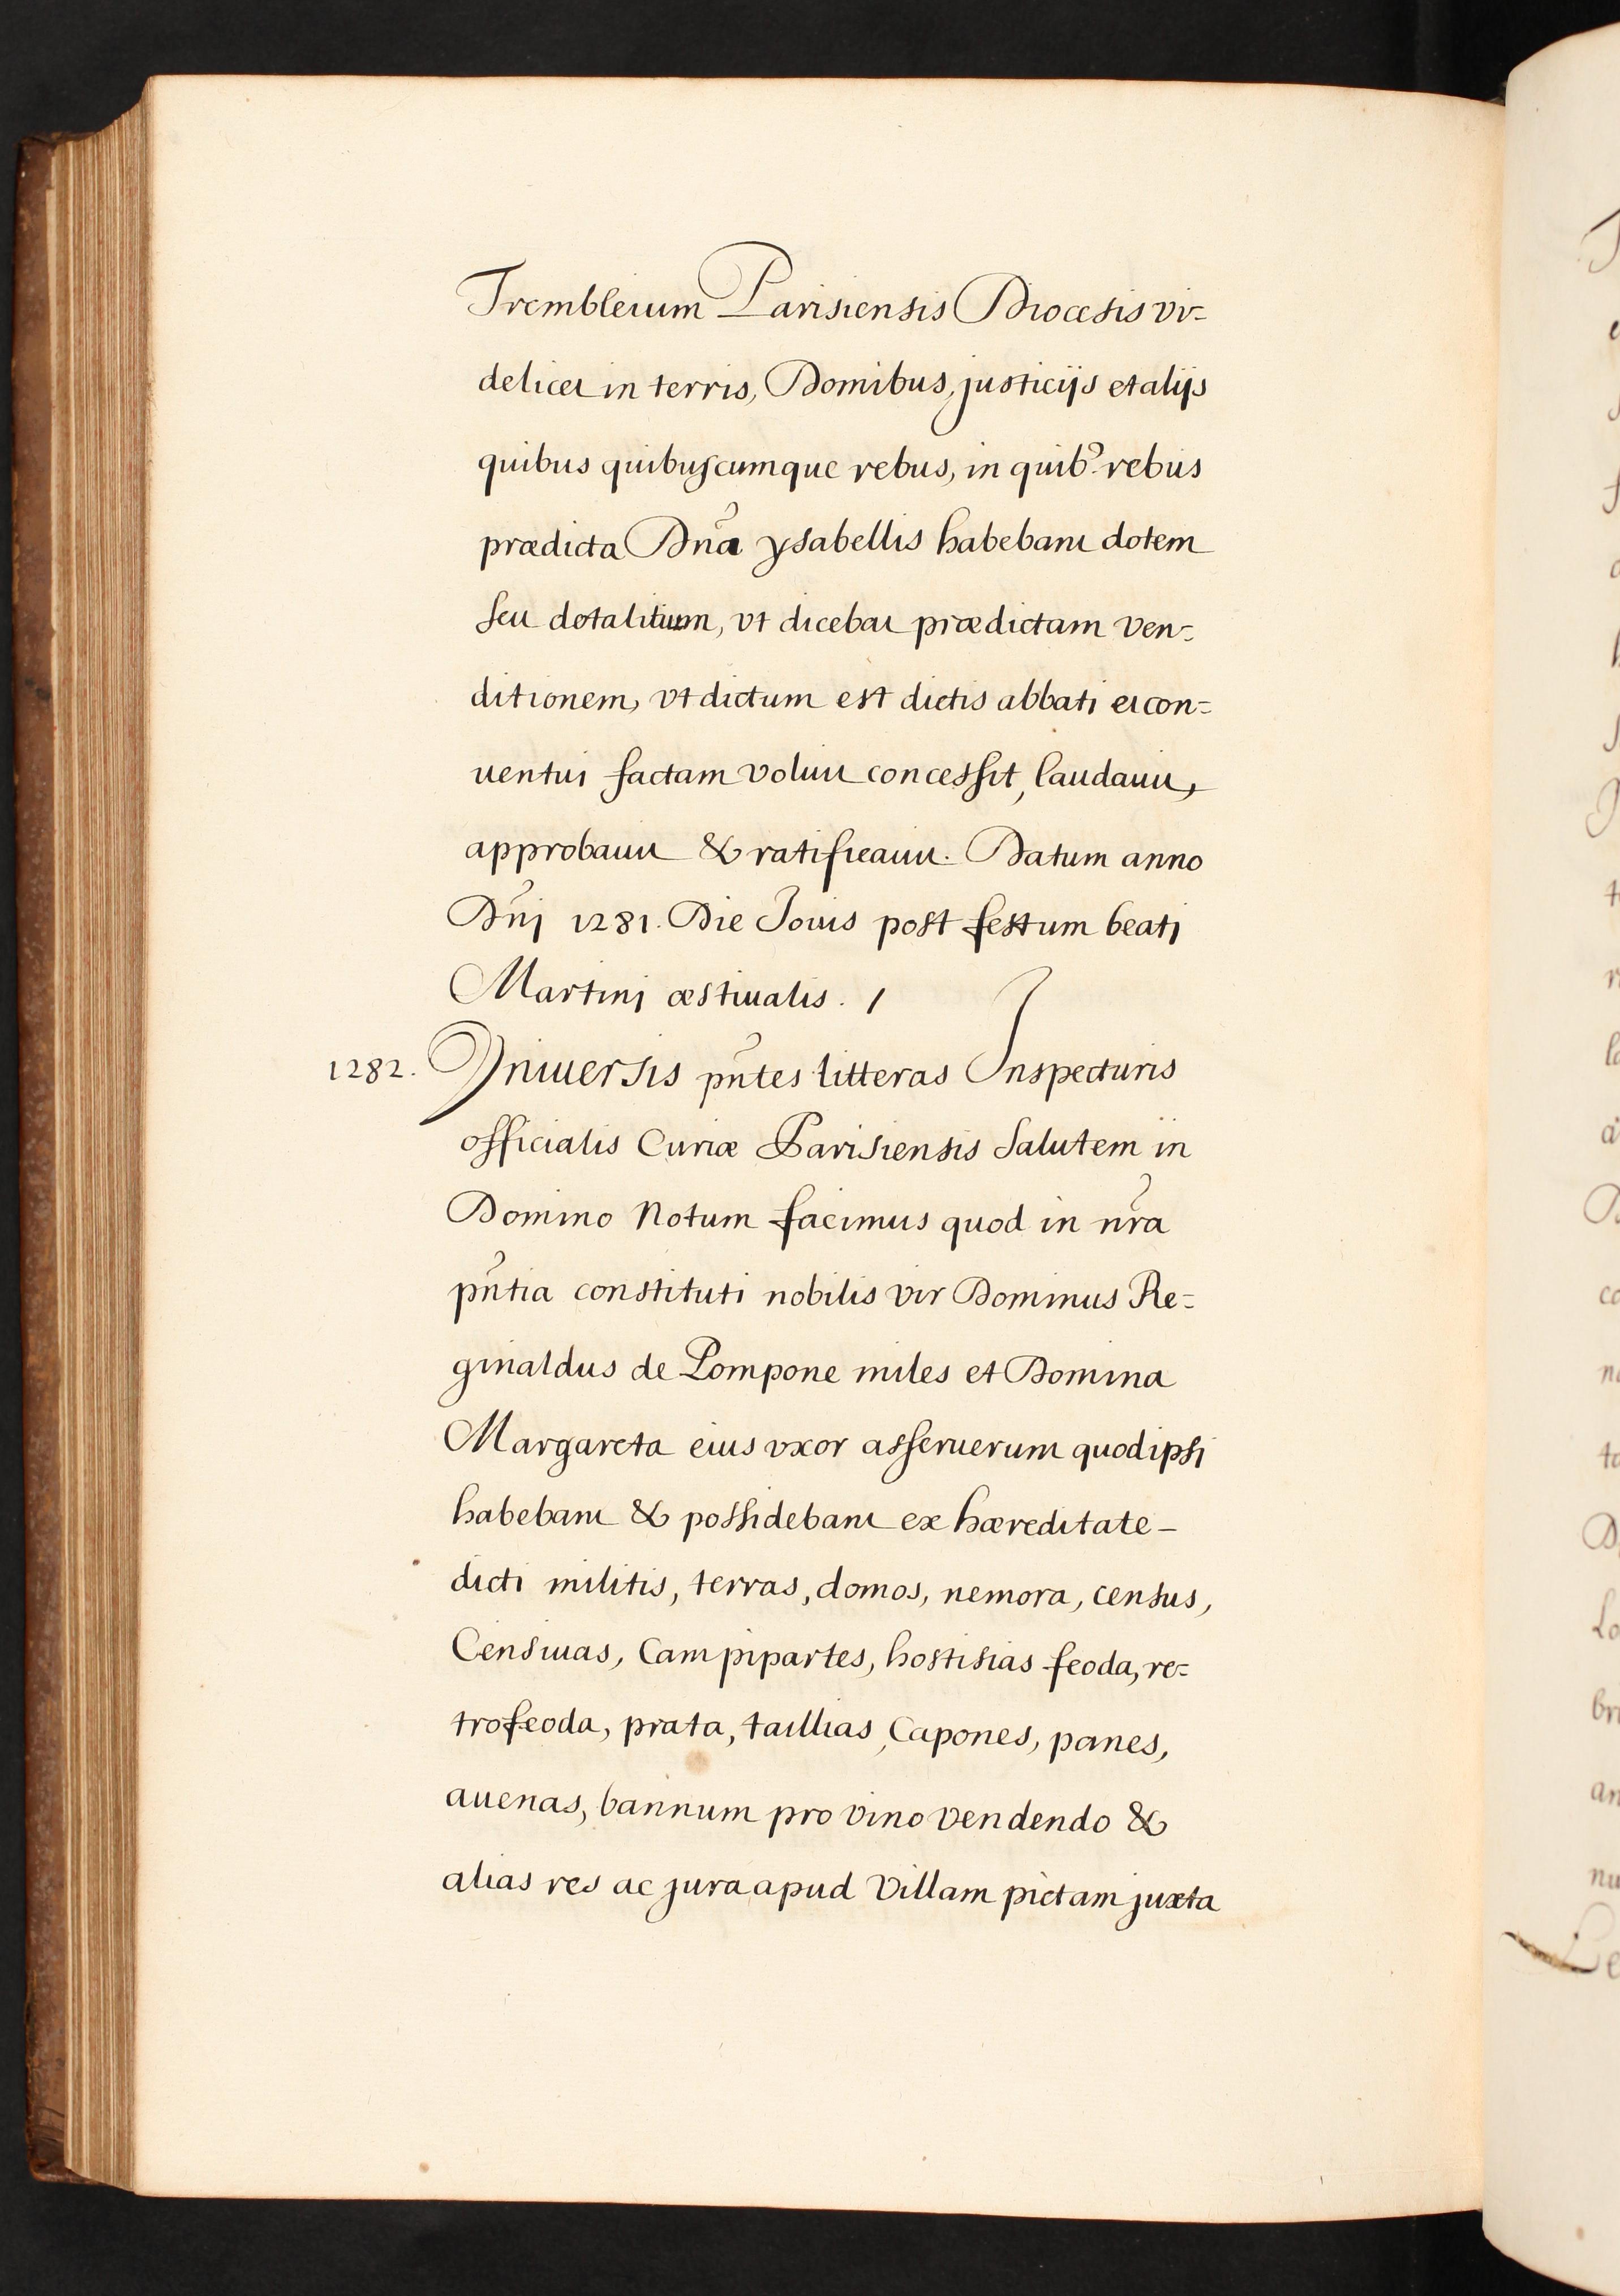 Trembleium Parisiensis Diocesis vi-
delicet in terris, Domibus, justicijs et alijs
quibus quibuscumque rebus, in quib9. rebus
prædicta Dña ysabellis habebant dotem
seu dotalitium, vt dicebat prædictam ven-
ditionem, vt dictum est dictis abbati et con=
uentui factam voluit concessit, laudauit,
approbauit & ratificauit. Datum anno
Dñj 1281. Die Jouis post festum beatj
Martinj æstiualis. /
1282. Vniuersis pñtes litteras Inspecturis
officialis Curiæ Parisiensis Salutem in
Domino Notum facimus quod in nr̃a
pñtia constituti nobilis vir Dominus Re=
ginaldus de Pompone miles et Domina
Margareta eius vxor asseruerunt quod ipsi
habebant & possidebant ex hæreditate -
dicti militis, terras, domos, nemora, census,
Censiuas, Campipartes, hostisias feoda, re=
trofeoda, prata, taillias, Capones, panes,
auenas, bannum pro vino vendendo &
alias res ac jura apud Villam pictam juxta